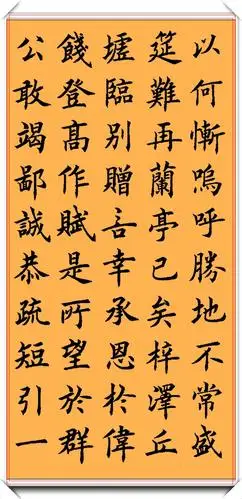 以何慚嗚呼勝地不常盛
筵難再蘭亭已矣梓澤丘
墟臨別贈言幸承恩扵偉
餞登髙作賦是所望於群
公敢竭鄙誠恭疏短引一